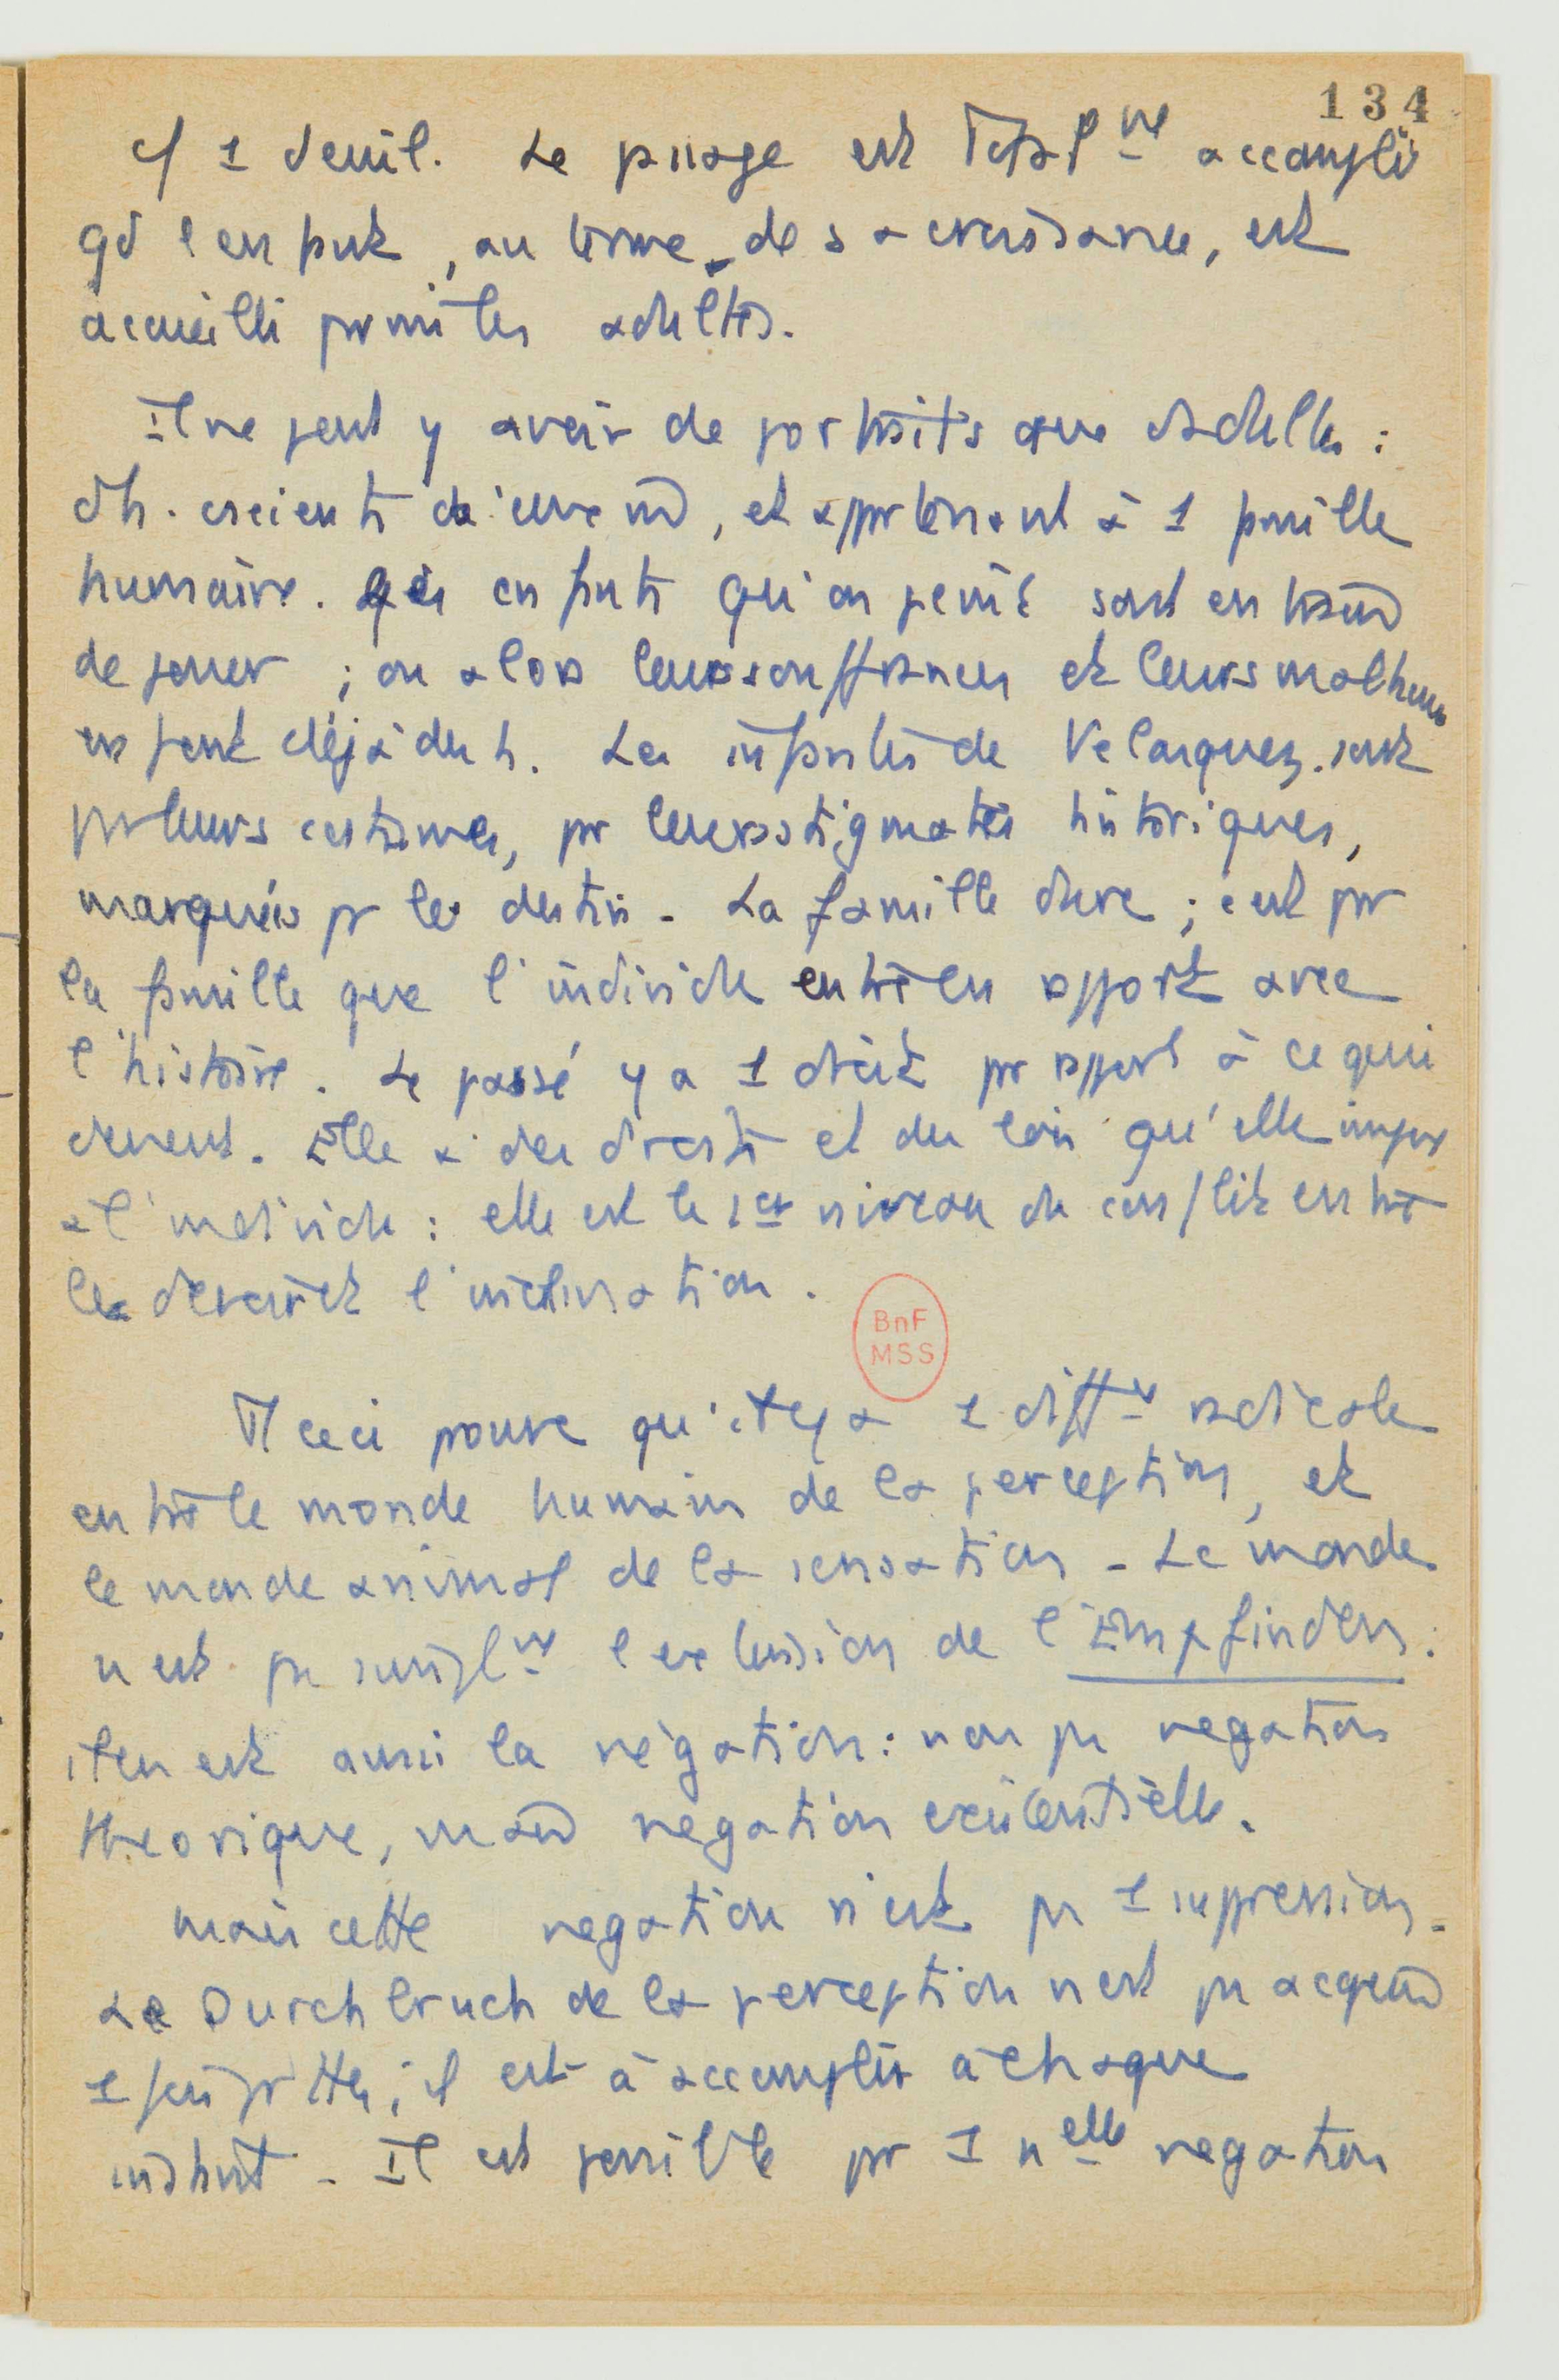 134
cf 1 deuil. Le passage est totalt accompli
qd l'enfant, au terme de sa croissance, est
accueilli parmi les adultes.
Il ne peut y avoir de portraits que d'adultes :
d'h. conscients d'eux m̂, et appartenant à 1 famille
humaine. Les enfants qu'on peint sont en train
de jouer ; ou alors leurs souffrances et leurs malheurs
en font déjà des h. Les infantes de Velasquez sont
par leurs costumes, par leurs stigmates historiques,
marquées par le destin. La famille dure ; c'est par
la famille que l'individu entre en rapport avec
l'histoire. Le passé y a 1 droit par rapport à ce qui
devient. Elle a des droits et des lois qu'elle impose
à l'individu : elle est le 1er niveau du conflit entre
le devoir et l'inclination.
BnF
MSS
Tt ceci prouve qu'il y a 1 diffce radicale
entre le monde humain de la perception, et
le monde animal de la sensation. Le monde
n'est pas simplt l'exclusion de l'Empfinden :
il en est aussi la négation : non pas negation
theorique, mais negation existentielle.
Mais cette negation n'est pas 1 suppression.
Le Durchbruch de la perception n'est pas acquis
1 fois pr ttes ; il est à accomplir à chaque
instant. Il est possible par 1 nelle negation